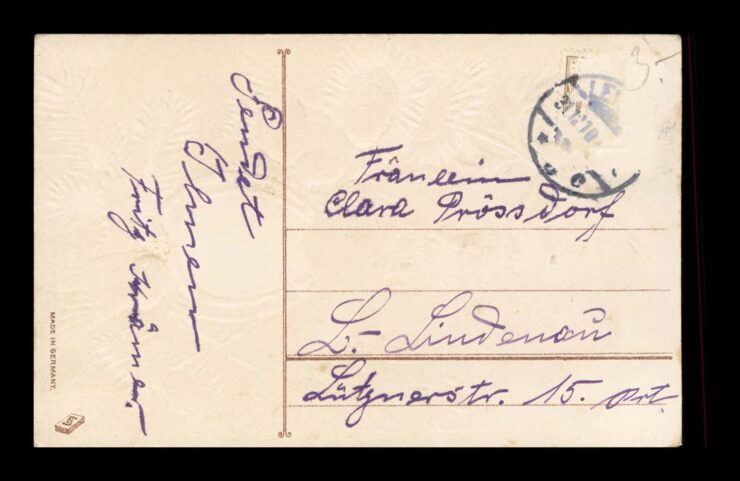 Sendet
Ihnen
Fritz Krämer.
3.-
Fräulein
Clara Prössdorf
L.- Lindenau
Lütznerstr. 15. Prt.
MADE IN GERMANY.